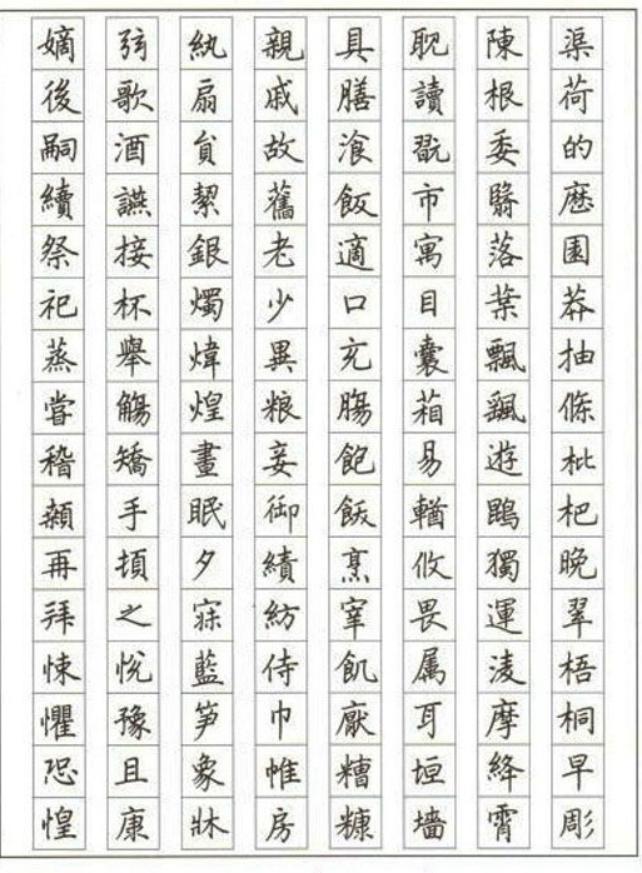 渠荷的歷園莽抽條枇杷晚翠梧桐早彫
陳根委翳落葉飄飖遊鵾獨運淩摩絳霄
耽讀翫市寓目囊葙易輶攸畏属耳垣墻
具膳飡飯適口充腸飽飫烹宰飢厭糟糠
親戚故舊老少異粮妾御績紡侍巾帷房
紈扇貟絜銀燭煒煌晝眠夕寐藍笋象牀
弦歌酒讌接杯舉觴矯手頓之悅豫且康
嫡後嗣續祭祀蒸嘗稽顙再拜悚懼恐惶